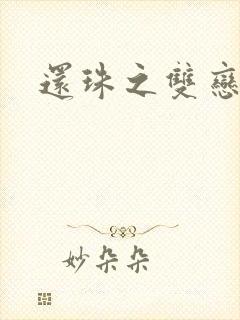 還珠之雙戀
妙朵朵